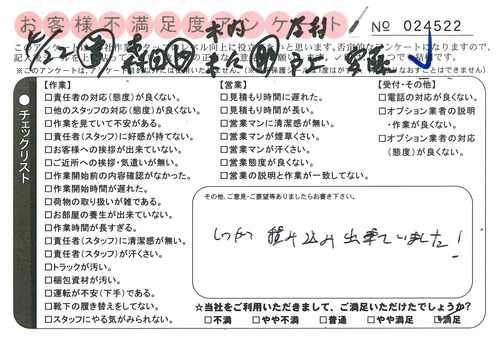 お客様不満足度アンケート
No 024522
チェックリスト
【作業】
□責任者の対応(態度)が良くない。
□他のスタッフの対応(態度)が良くない。
□作業を見ていて不安がある。
□責任者(スタッフ)に好感が持てない。
□お客様への挨拶が出来ていない。
□ご近所への挨拶・気遣いが無い。
□作業開始前の内容確認がなかった。
□作業開始時間が遅れた。
□荷物の取り扱いが雑である。
□お部屋の養生が出来ていない。
□作業時間が長すぎる。
□責任者(スタッフ)に清潔感が無い。
□責任者(スタッフ)が汗くさい。
□トラックが汚い。
□梱包資材が汚い。
□運転が不安(下手)である。
□靴下の履き替えをしてない。
□スタッフにやる気がみられない。
【営業】
□見積もり時間に遅れた。
□見積もり時間が長い。
□営業マンに清潔感が無い。
□営業マンが煙草くさい。
□営業マンが汗くさい。
□営業態度が良くない。
□営業の説明と作業が一致してない。
【受付・その他】
□電話の対応が良くない。
□オプション業者の説明
・作業が良くない。
□オプション業者の対応
(態度)が良くない。
その他、ご意見・ご要望等ありましたらお書き下さい。
積み込み出来ていました!
☆当社をご利用いただきまして、ご満足いただけたでしょうか?
□不満 □やや不満 □普通 □やや満足 □満足